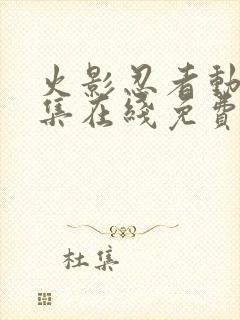 火影忍者動
集在綫免費
杜集